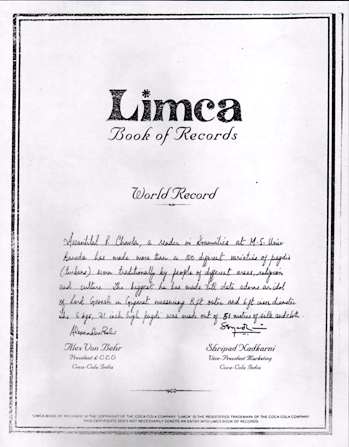 Limca
Book of Records
World Record
P. Chawla, a reader in Dramatics at M.S. Univ.
Baroda has made more than a 100 different varieties of pagdis
(turbans) worn traditionally by people of different areas, religion
and culture. The biggest he has made till date adorns an idol
of Lord Ganesh in Gujarat measuring 8 ft outer and 6 ft inner diameter
The 6 kgs, 21 inch high pagdi was made out of 51 metres of silk and cloth
Alex Von Behr
President & C.E.O
Coca-Cola India
Shripad Nadkarni
Vice-President Marketing
Coca-Cola India
"LIMCA BOOK OF RECORDS" IS THE COPYRIGHT OF THE COCA-COLA COMPANY. "LIMCA" IS THE REGISTERED TRADEMARK OF THE COCA-COLA COMPANY
THIS CERTIFICATE DOES NOT NECESSARILY DENOTE AN ENTRY INTO LIMCA BOOK OF RECORDS.